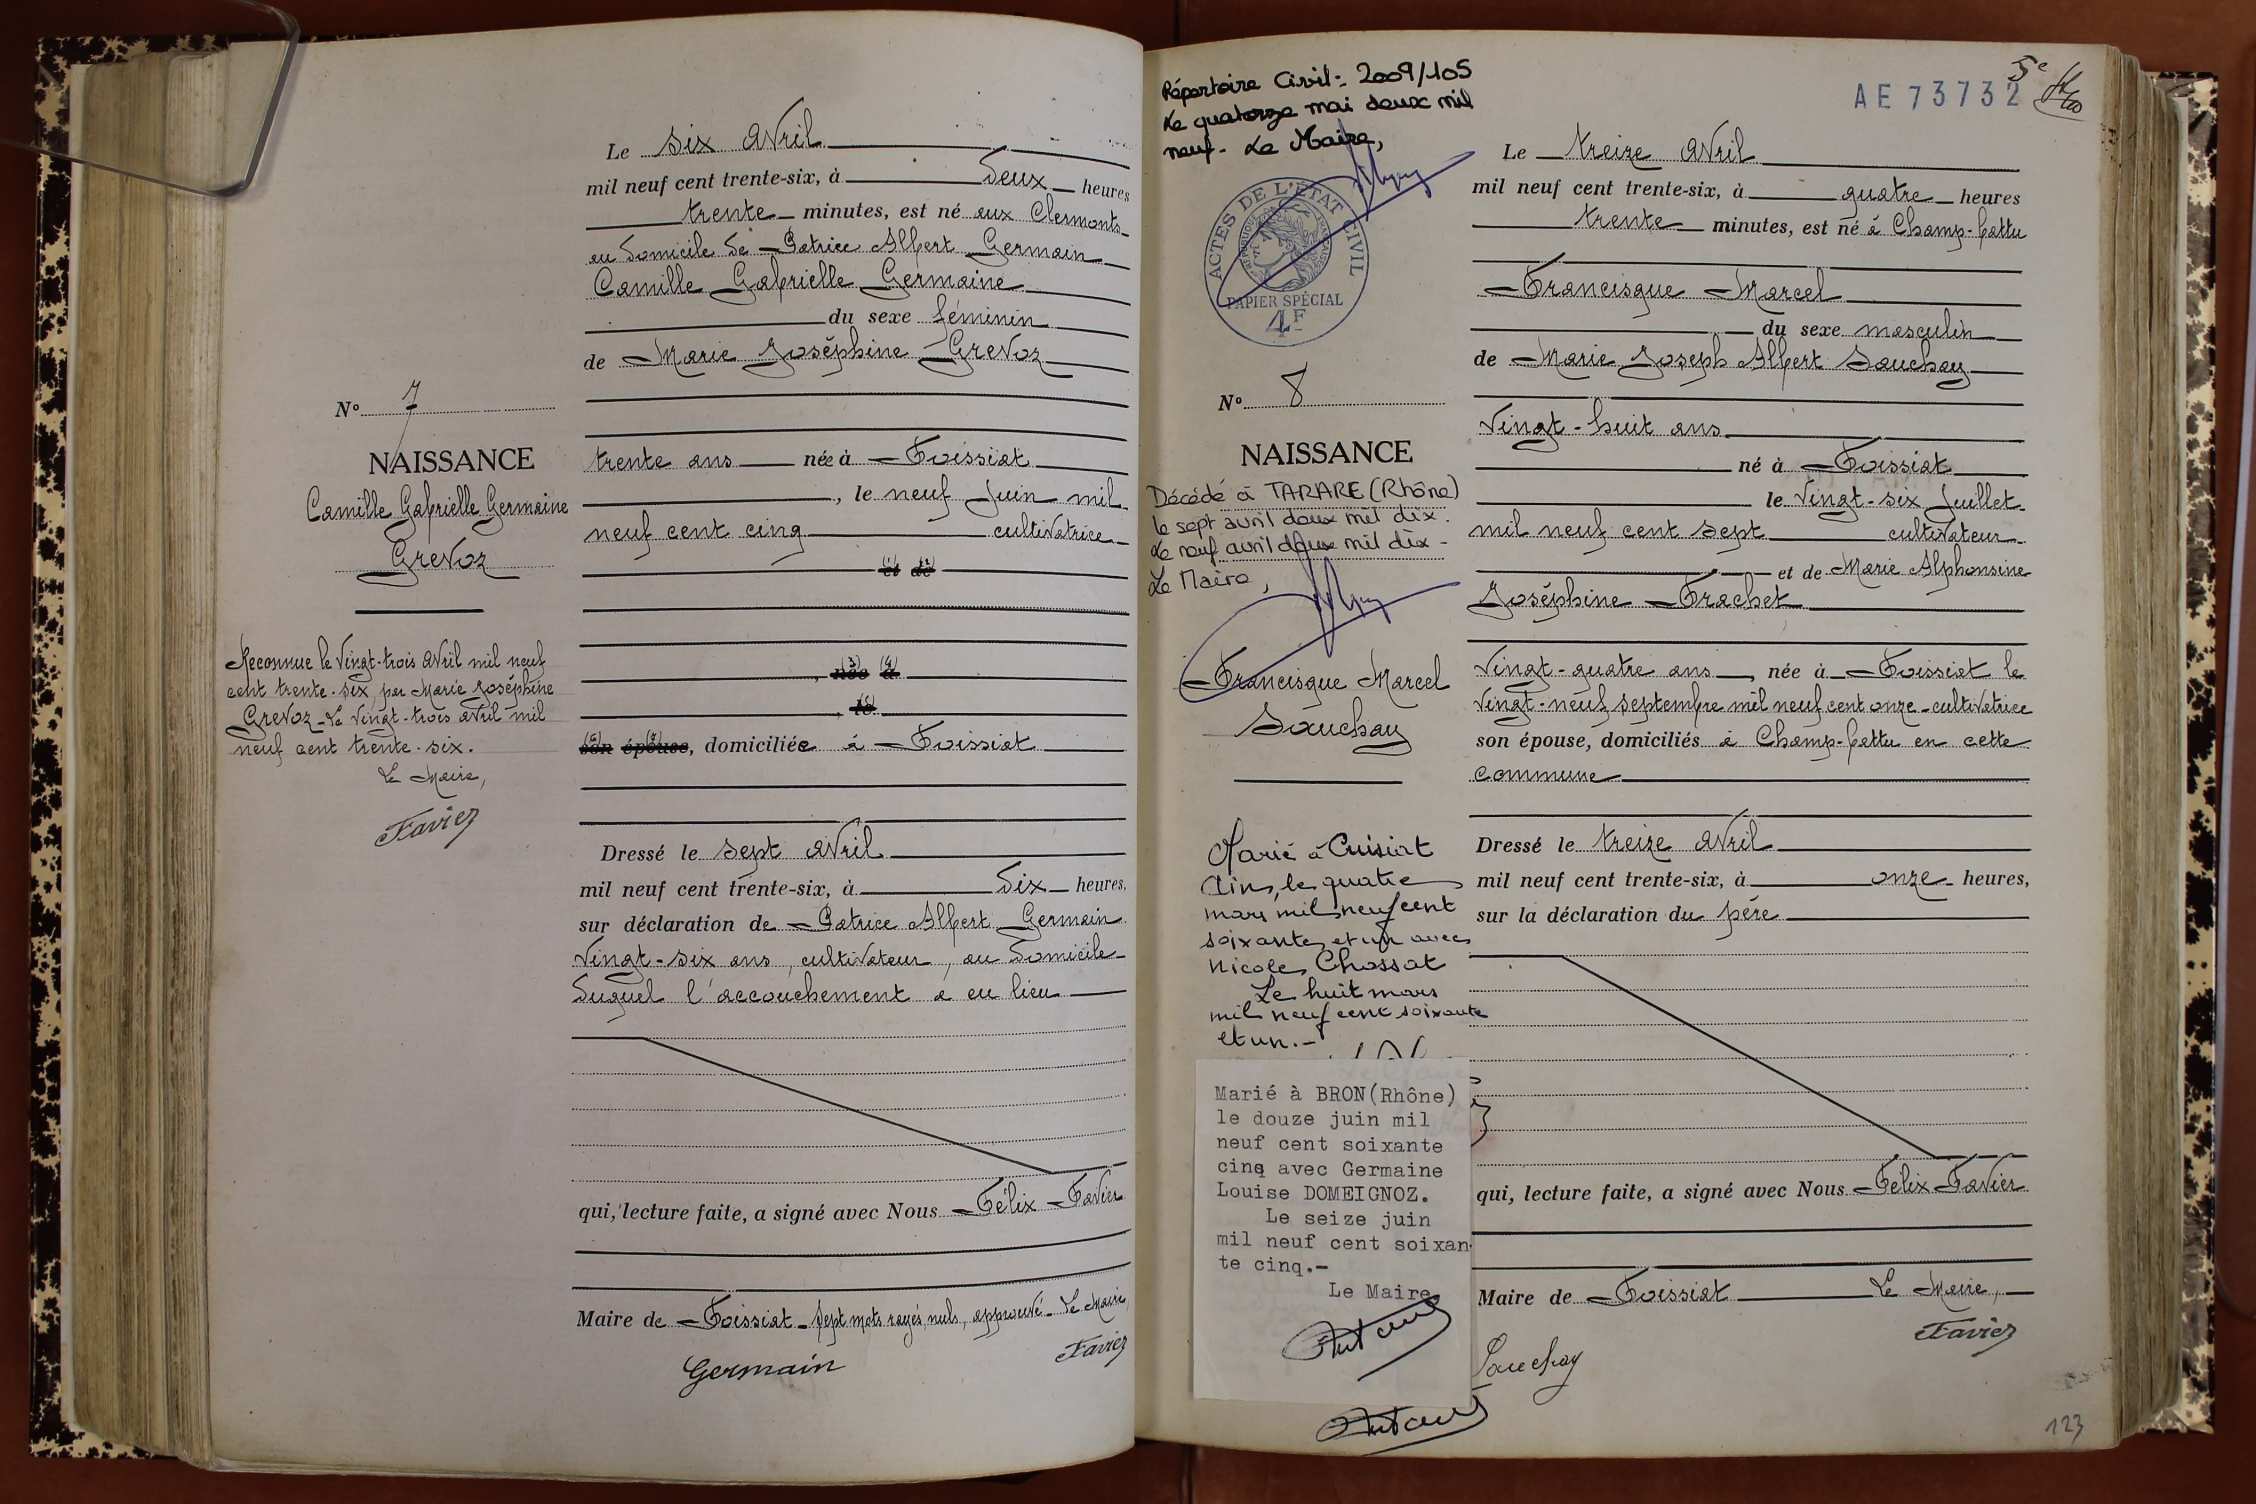 Le six Avril
mil neuf cent trente-six, à deux heures
trente minutes, est né aux Clermonts
au domicile de Patrice Albert Germain
Camille Gabrielle Germaine
du sexe féminin
de Marie Joséphine Grevoz
N° 7
NAISSANCE
Camille Gabrielle Germaine
Grevoz
trente ans née à Foissiat
, le neuf Juin mil
neuf cent cinq cultivatrice
(1) (2)
et de
(3) (4)
, née à
, le
(6) (7)
son épouse, domiciliée à Foissiat
Reconnue le Vingt-trois Avril mil neuf
cent trente-six, par Marie Joséphine
Grevoz - Le Vingt-trois Avril mil
neuf cent trente-six.
Le Maire,
Favier
Dressé le sept Avril
mil neuf cent trente-six, à Six heures,
sur déclaration de Patrice Albert Germain
Vingt-six ans, cultivateur, au domicile
duquel l'accouchement a eu lieu
qui, lecture faite, a signé avec Nous Félix Favier
Maire de Foissiat - Sept mots rayés, nuls, approuvé - Le Maire,
Favier
Germain
Répertoire Civil : 2009/105
Le quatorze mai deux mil
neuf - Le Maire,
ACTES DE L'ÉTAT CIVIL
RÉPUBLIQUE FRANÇAISE
PAPIER SPÉCIAL
4F
AE 73732
5e
Le treize Avril
mil neuf cent trente-six, à quatre heures
trente minutes, est né à Champ-battu
Francisque Marcel
du sexe masculin
de Marie Joseph Albert Sauchay
N° 8
NAISSANCE
Décédé à TARARE (Rhône)
le sept avril deux mil dix.
Le neuf avril deux mil dix -
Le Maire,
Francisque Marcel
Sauchay
Vingt-huit ans
né à Foissiat
le Vingt-six Juillet
mil neuf cent sept cultivateur
et de Marie Alphonsine
Joséphine Frachet
Vingt-quatre ans, née à Foissiat le
Vingt-neuf septembre mil neuf cent onze - cultivatrice
son épouse, domiciliés à Champ-battu en cette
commune
Marié à Cuisiat
Ain, le quatre
mars mil neuf cent
soixante et un avec
Nicole Chossat
Le huit mars
mil neuf cent soixante
et un.-
Marié à BRON(Rhône)
le douze juin mil
neuf cent soixante
cinq avec Germaine
Louise DOMEIGNOZ.
Le seize juin
mil neuf cent soixan
te cinq.-
Le Maire
Dressé le treize Avril
mil neuf cent trente-six, à onze heures,
sur la déclaration du père
qui, lecture faite, a signé avec Nous Félix Favier
Maire de Foissiat Le Maire,
Favier
Sauchay
123